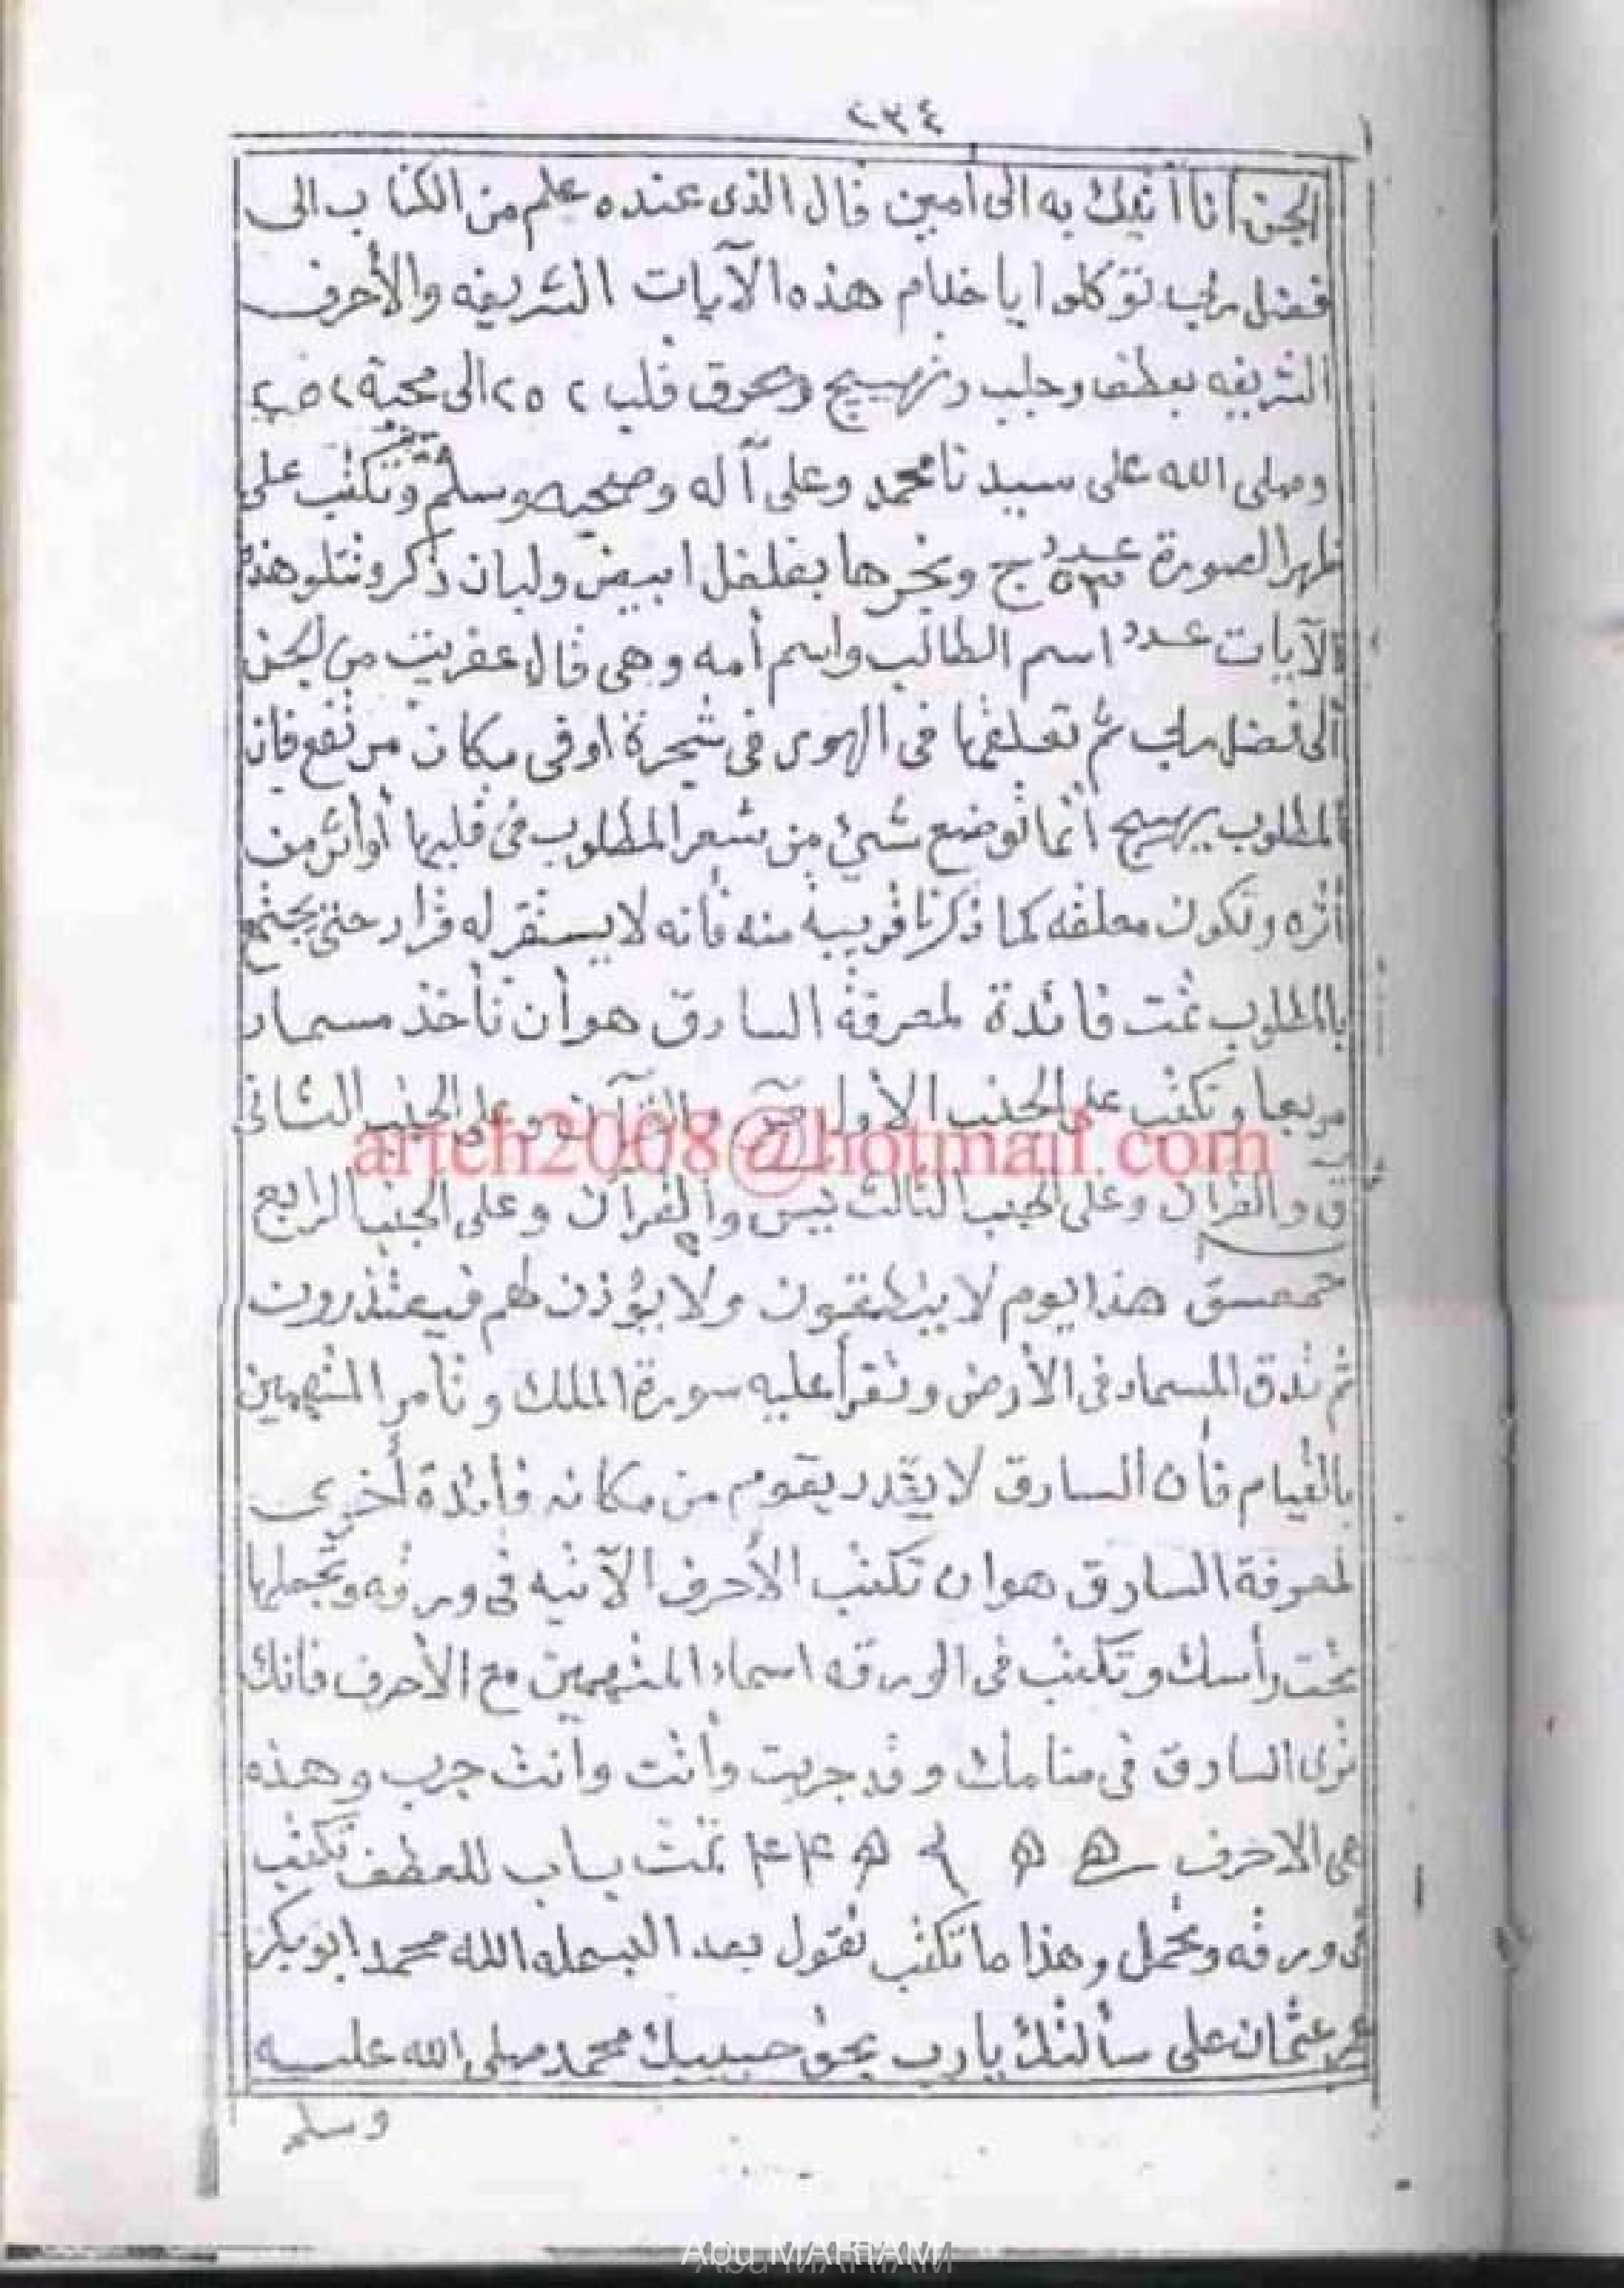 ٢٣٤
الجن انا أتيك به الى امين قال الذى عنده علم من الكتاب الى
فضل ربى توكلوا ياخدام هذه الآيات الشريفه والأحرف
الشريفه بعطف وجلب وتهييج وحرق قلب ٢٥٢ الى محبة ٢٥٢
وصلى الله على سيدنا محمد وعلى آله وصحبه وسلم وتكتب على
ظهر الصورة عدد ج وبخرها بفلفل ابيض ولبان ذكر وتتلو هذه
الآيات عدد اسم الطالب واسم أمه وهى قال عفريت من الجن
الى فضل ربى ثم تعلقها فى الهوى فى شجرة او فى مكان مرتفع فان
المطلوب يهيج أنما توضع شيئ من شعر المطلوب فى قلبها أو اثر من
أثره وتكون معلقه كما ذكرنا قريبة منه فأنه لا يستقر له قرار حتى يجتمع
بالمطلوب تمت فائدة لمعرفة السارق هو أن تأخذ مسمار
مربعا وتكتب على الجنب الأول والقرآن وعلى الجنب الثانى
ق والقرآن وعلى الجنب الثالث يس والقرآن وعلى الجنب الرابع
حمعسق هذا يوم لا ينطقون ولا يؤذن لهم فيعتذرون
ثم تدق المسمار فى الأرض وتقرأ عليه سورة الملك وتأمر المتهمين
بالقيام فأن السارق لا يقدر يقوم من مكانه فائدة أخرى
لمعرفة السارق هو ان تكتب الأحرف الآتيه فى ورقه وتجعلها
تحت رأسك وتكتب فى الورقه اسماء المتهمين مع الأحرف فانك
ترى السارق فى منامك وقد جربت وأنت وأنت جرب وهذه
هى الاحرف تمت باب للعطف تكتب
فى ورقه وتحمل وهذا ما تكتب تقول بعد البسمله الله محمد ابو بكر
عمر عثمان على سألتك يارب بحق حبيبك محمد صلى الله عليه
وسلم
arjeh2008@hotmail.com
Abu MARIAM